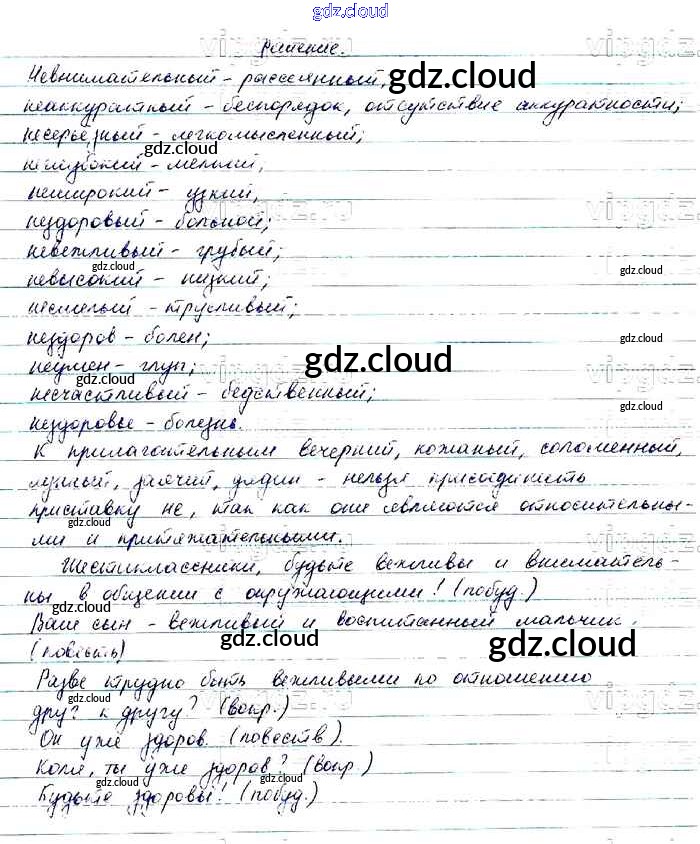 gdz.cloud
Решение.
Невнимательный - рассеянный,
неаккуратный - беспорядок, отсутствие аккуратности;
несерьёзный - легкомысленный;
неглубокий - мелкий,
неширокий - узкий,
нездоровый - больной;
невежливый - грубый;
невысокий - низкий;
несмелый - трусливый;
нездоров - болен;
неумен - глуп;
несчастливый - бедственный;
нездоровье - болезнь.
К прилагательным вечерний, кожаный, соломенный,
заячий, дядин - нельзя присоединить
приставку не, так как они являются относительны-
ми и притяжательными.
Шестиклассники, будьте вежливы и вниматель-
ны в общении с окружающими! (побуд.)
Ваш сын - вежливый и воспитанный мальчик.
(повеств)
Разве трудно быть вежливыми по отношению
друг к другу? (вопр.)
Он уже здоров. (повеств).
Коля, ты уже здоров? (вопр.)
Будьте здоровы! (побуд.)